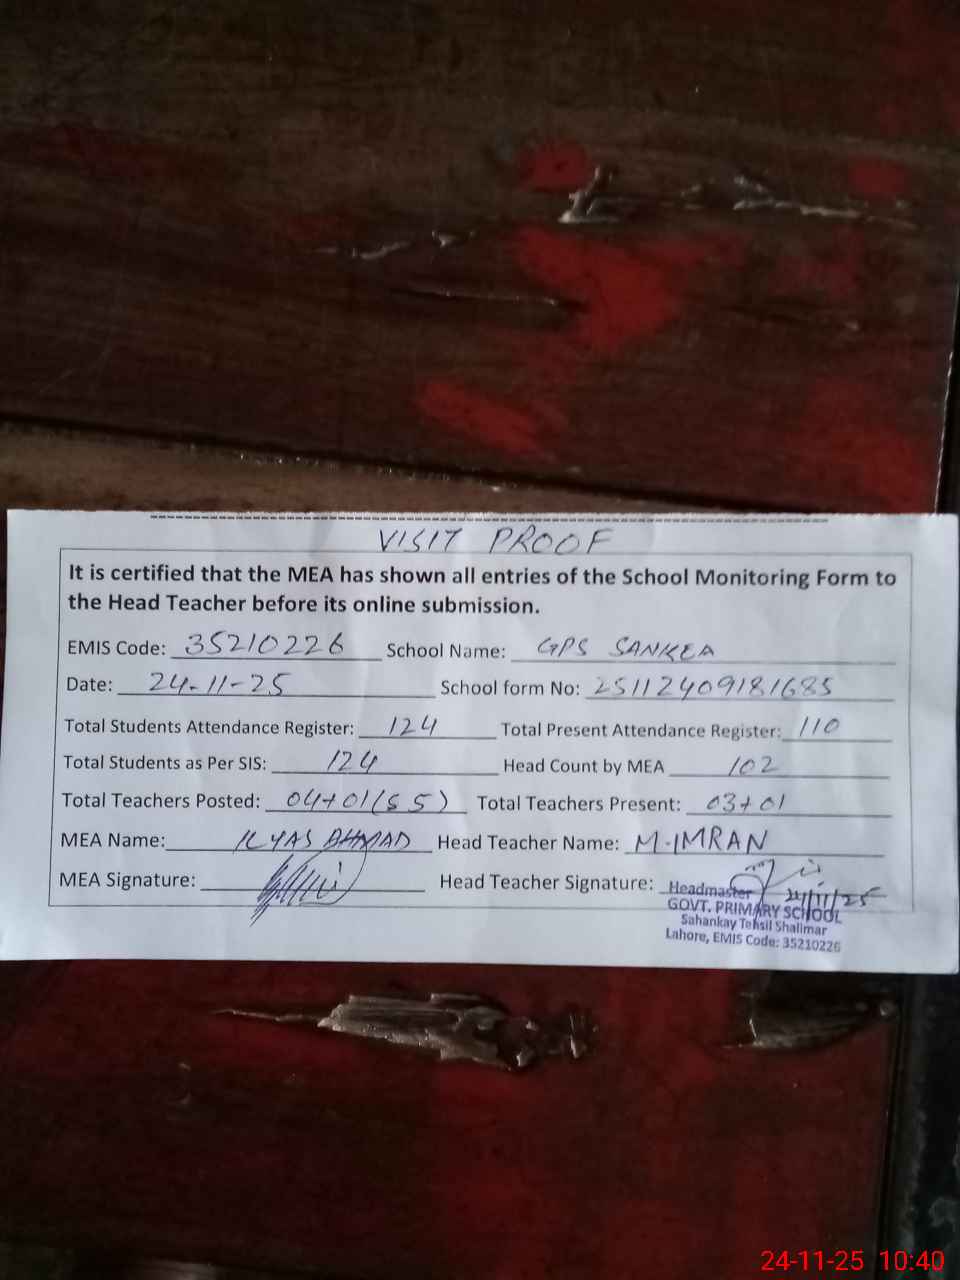 VISIT PROOF
It is certified that the MEA has shown all entries of the School Monitoring Form to
the Head Teacher before its online submission.
EMIS Code: 35210226 School Name: GPS SANKEA
Date: 24-11-25 School form No: 25112409181685
Total Students Attendance Register: 124 Total Present Attendance Register: 110
Total Students as Per SIS: 124 Head Count by MEA 102
Total Teachers Posted: 04+01(SS) Total Teachers Present: 03+01
MEA Name: ILYAS AHMAD Head Teacher Name: M.IMRAN
MEA Signature: Head Teacher Signature:
Headmaster 24/11/25
GOVT. PRIMARY SCHOOL
Sahankay Tehsil Shalimar
Lahore, EMIS Code: 35210226
24-11-25 10:40